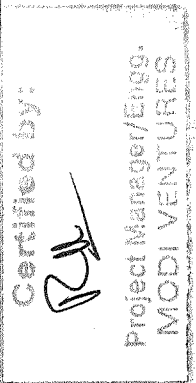 Certified by:
Project Manager/Engg.
MODI VENTURES